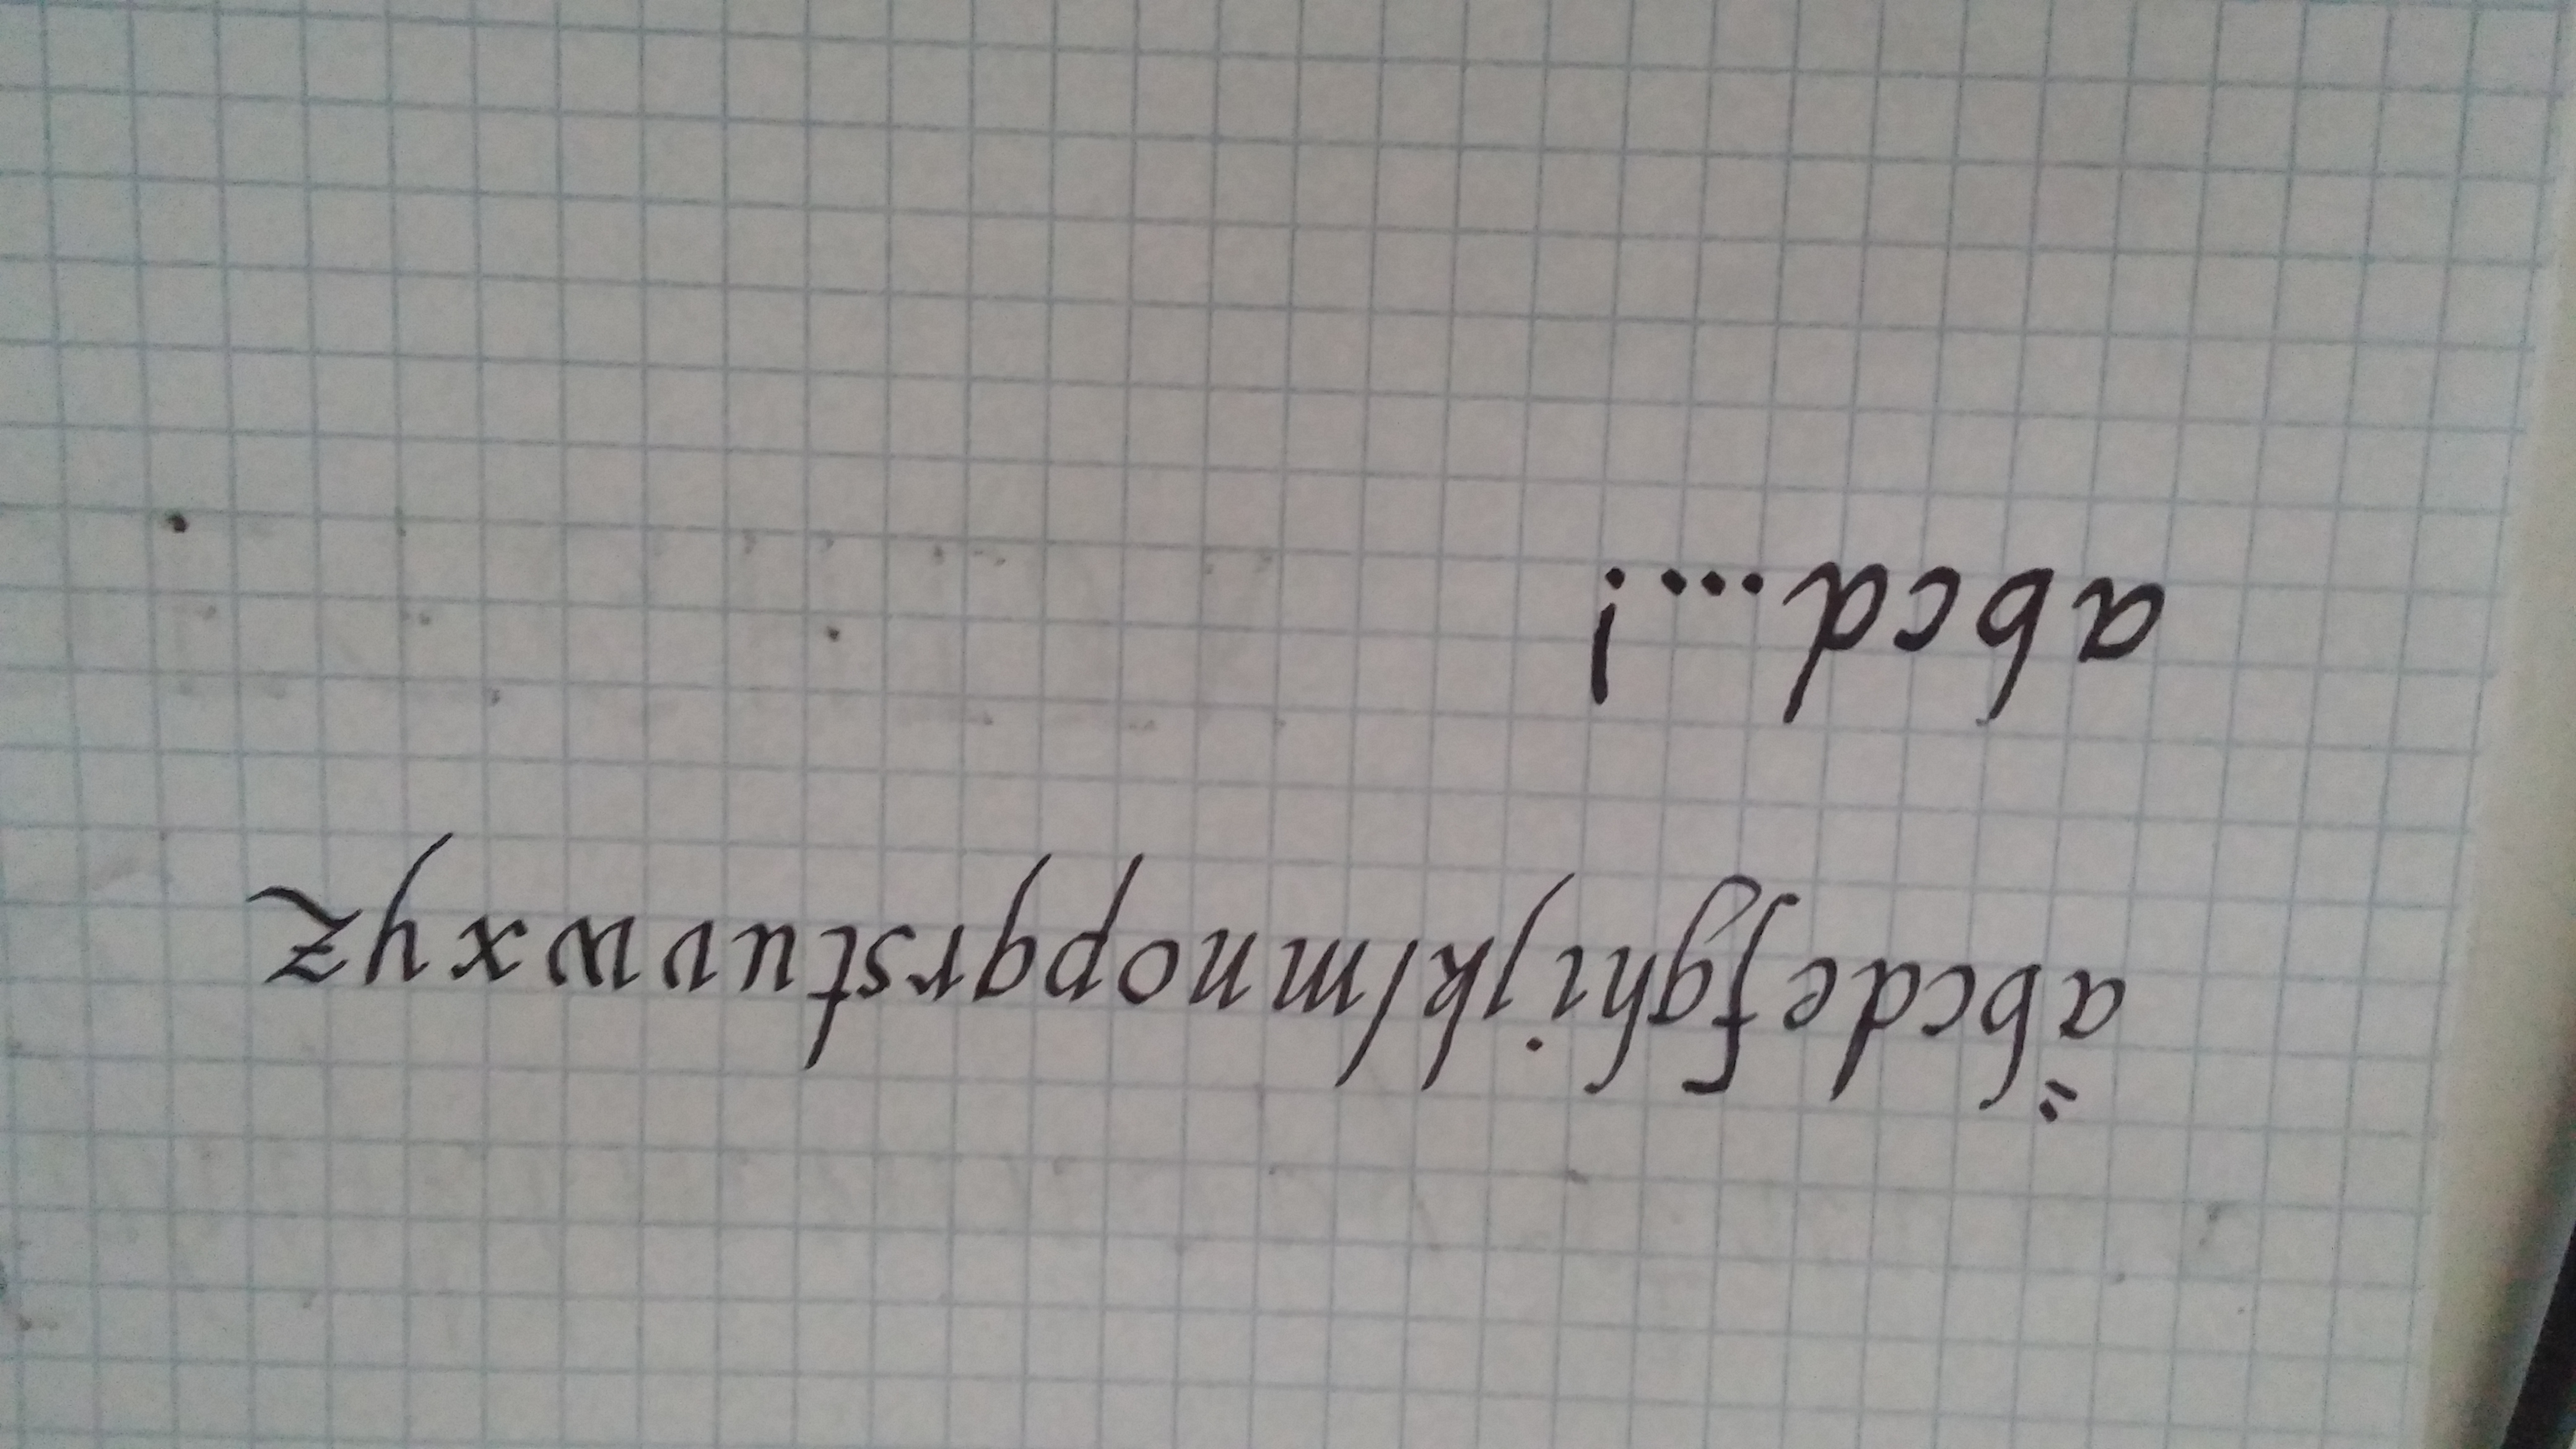 äbcdefghijklmnopqrstuvwxyz
abcd...!